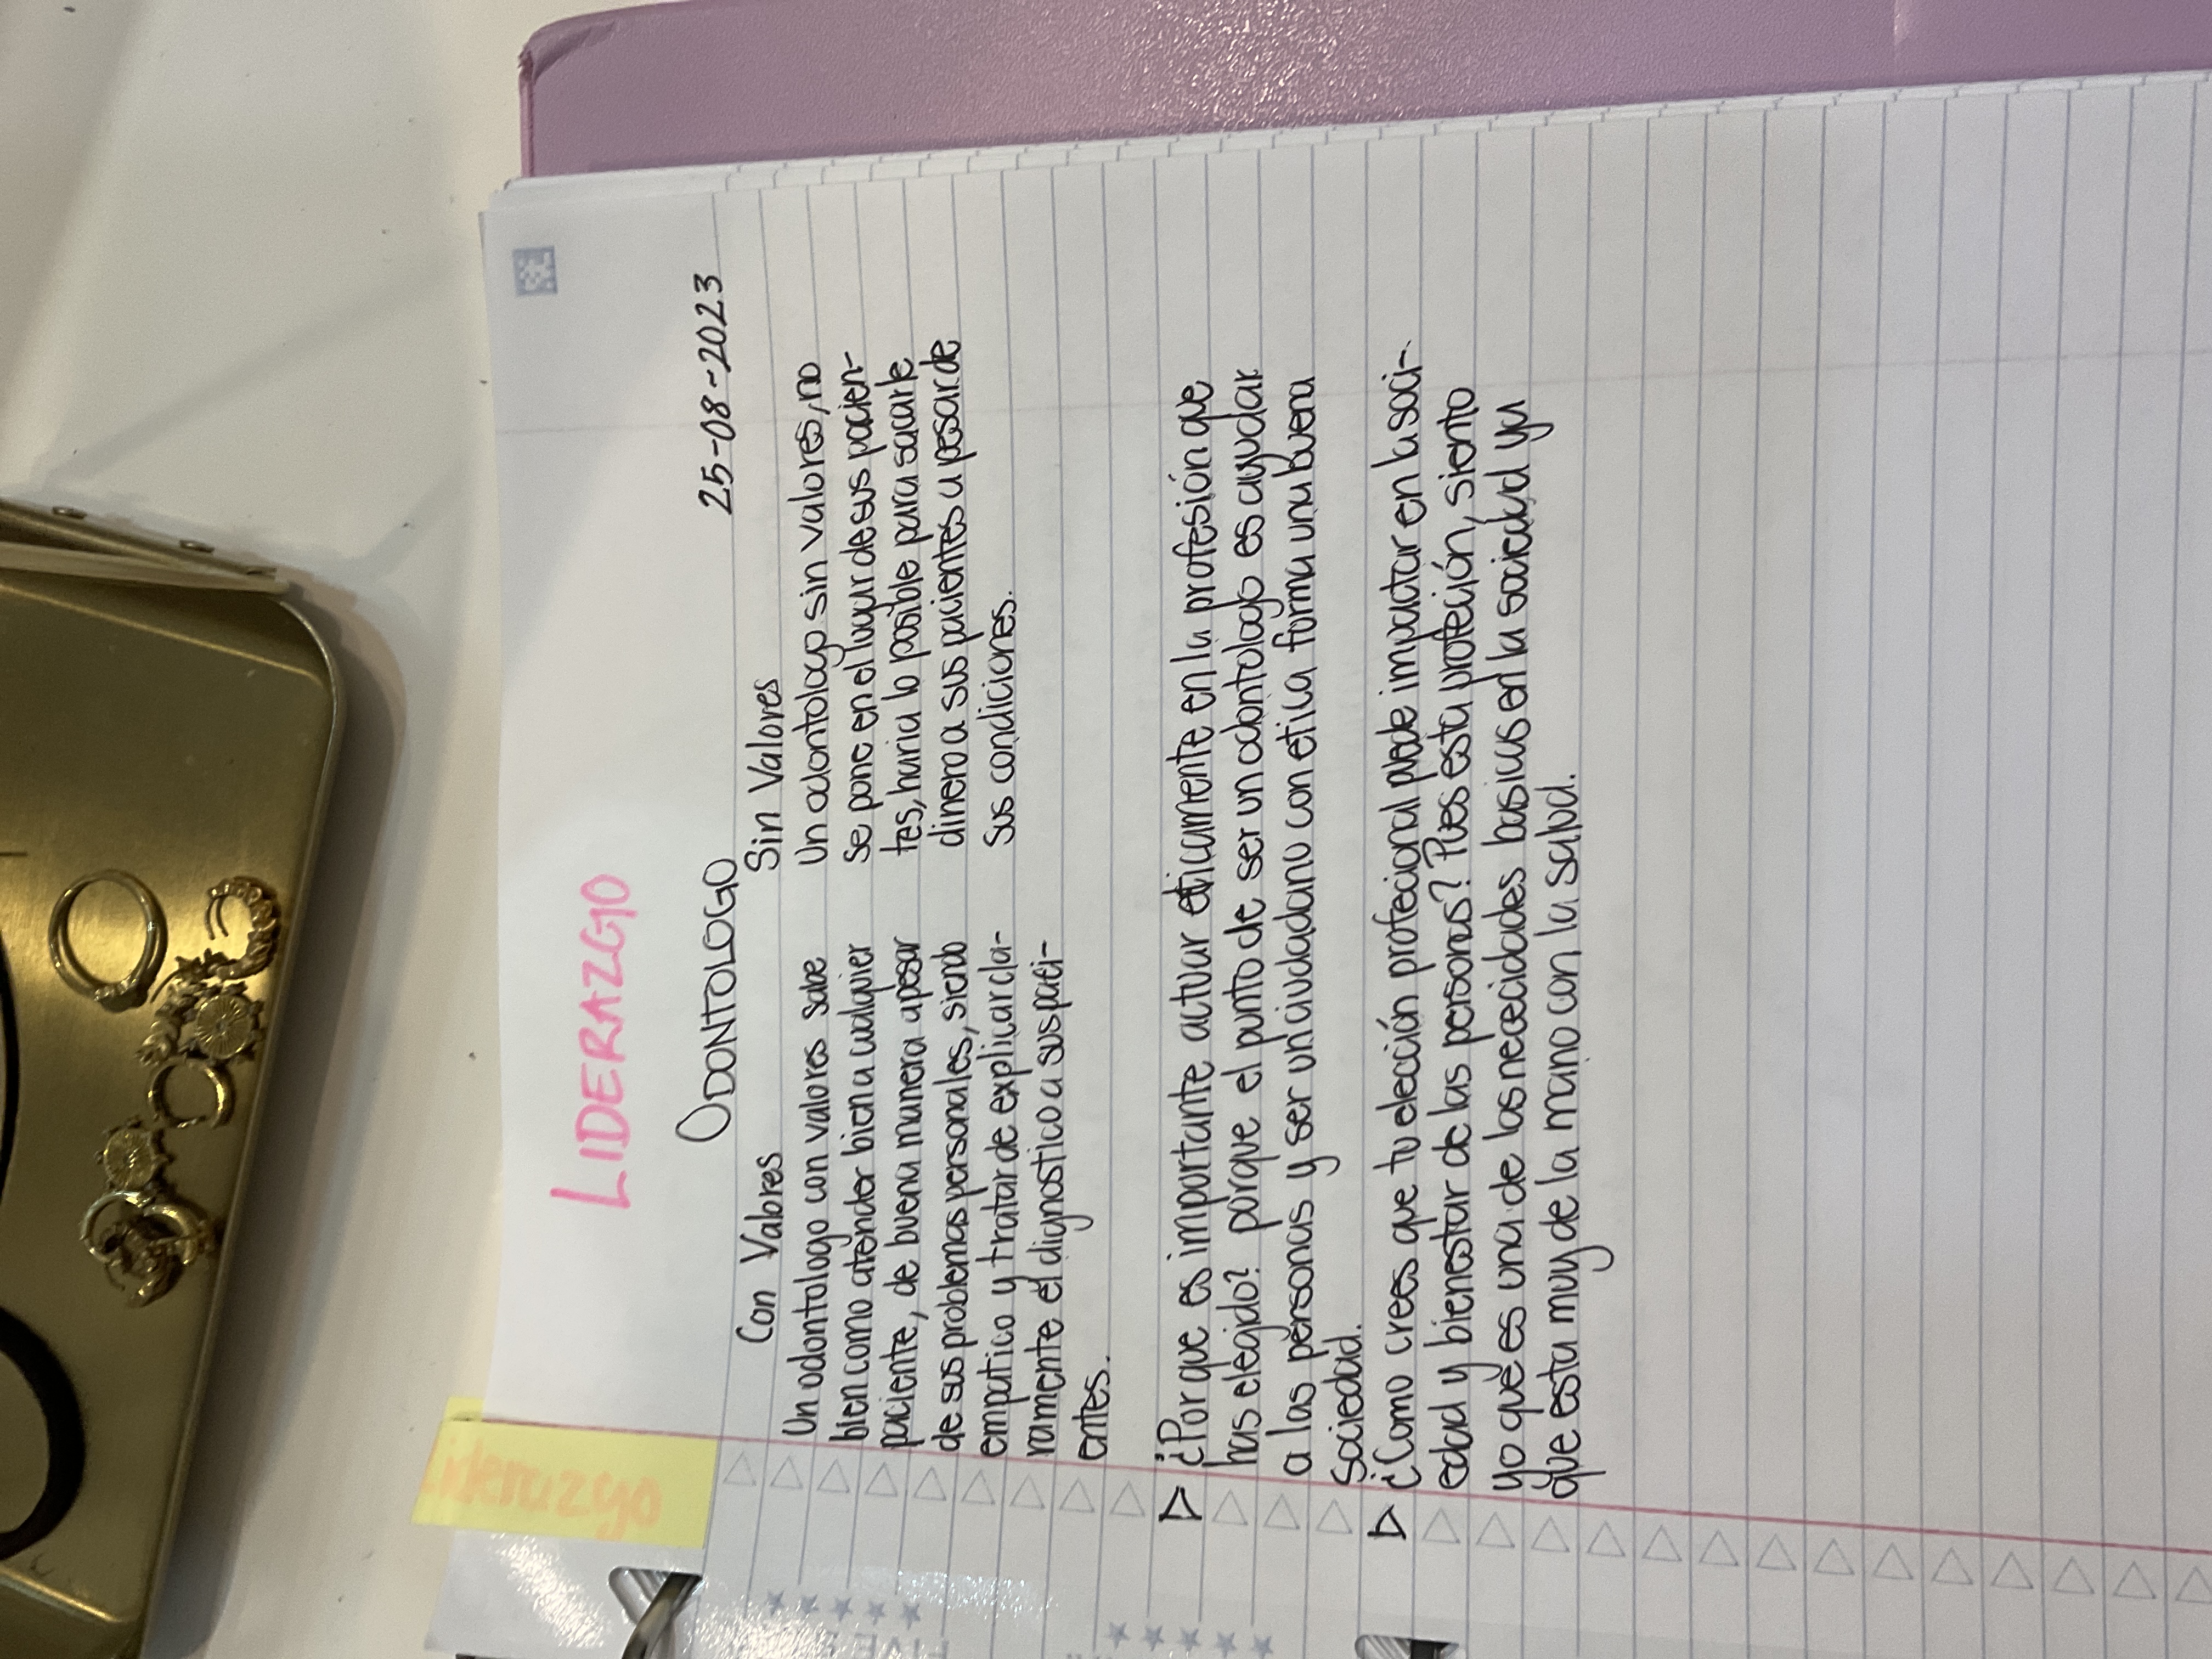 Liderazgo
LIDERAZGO
25-08-2023
ODONTOLOGO
Con Valores
Un odontologo con valores sabe
bien como atender bien a cualquier
paciente, de buena manera apesar
de sus problemas personales, siendo
empatico y tratar de explicar cla-
ramente el dignostico a sus paci-
entes.
Sin Valores
Un odontologo sin valores, no
se pone en el lugar de sus pacien-
tes, haria lo posible para sacarle
dinero a sus pacientes a pesar de
sus condiciones.
¿Por que es importante actuar eticamente en la profesión que
has elegido? porque el punto de ser un odontologo es ayudar
a las personas y ser un ciudadano con etica forma una buena
sociedad.
¿Como crees que tu elección profecional puede impactar en la soci-
edad y bienestar de las personas? Pues esta profeción, siento
yo que es una de las necedidades basicas en la sociedad ya
que esta muy de la mano con la salud.